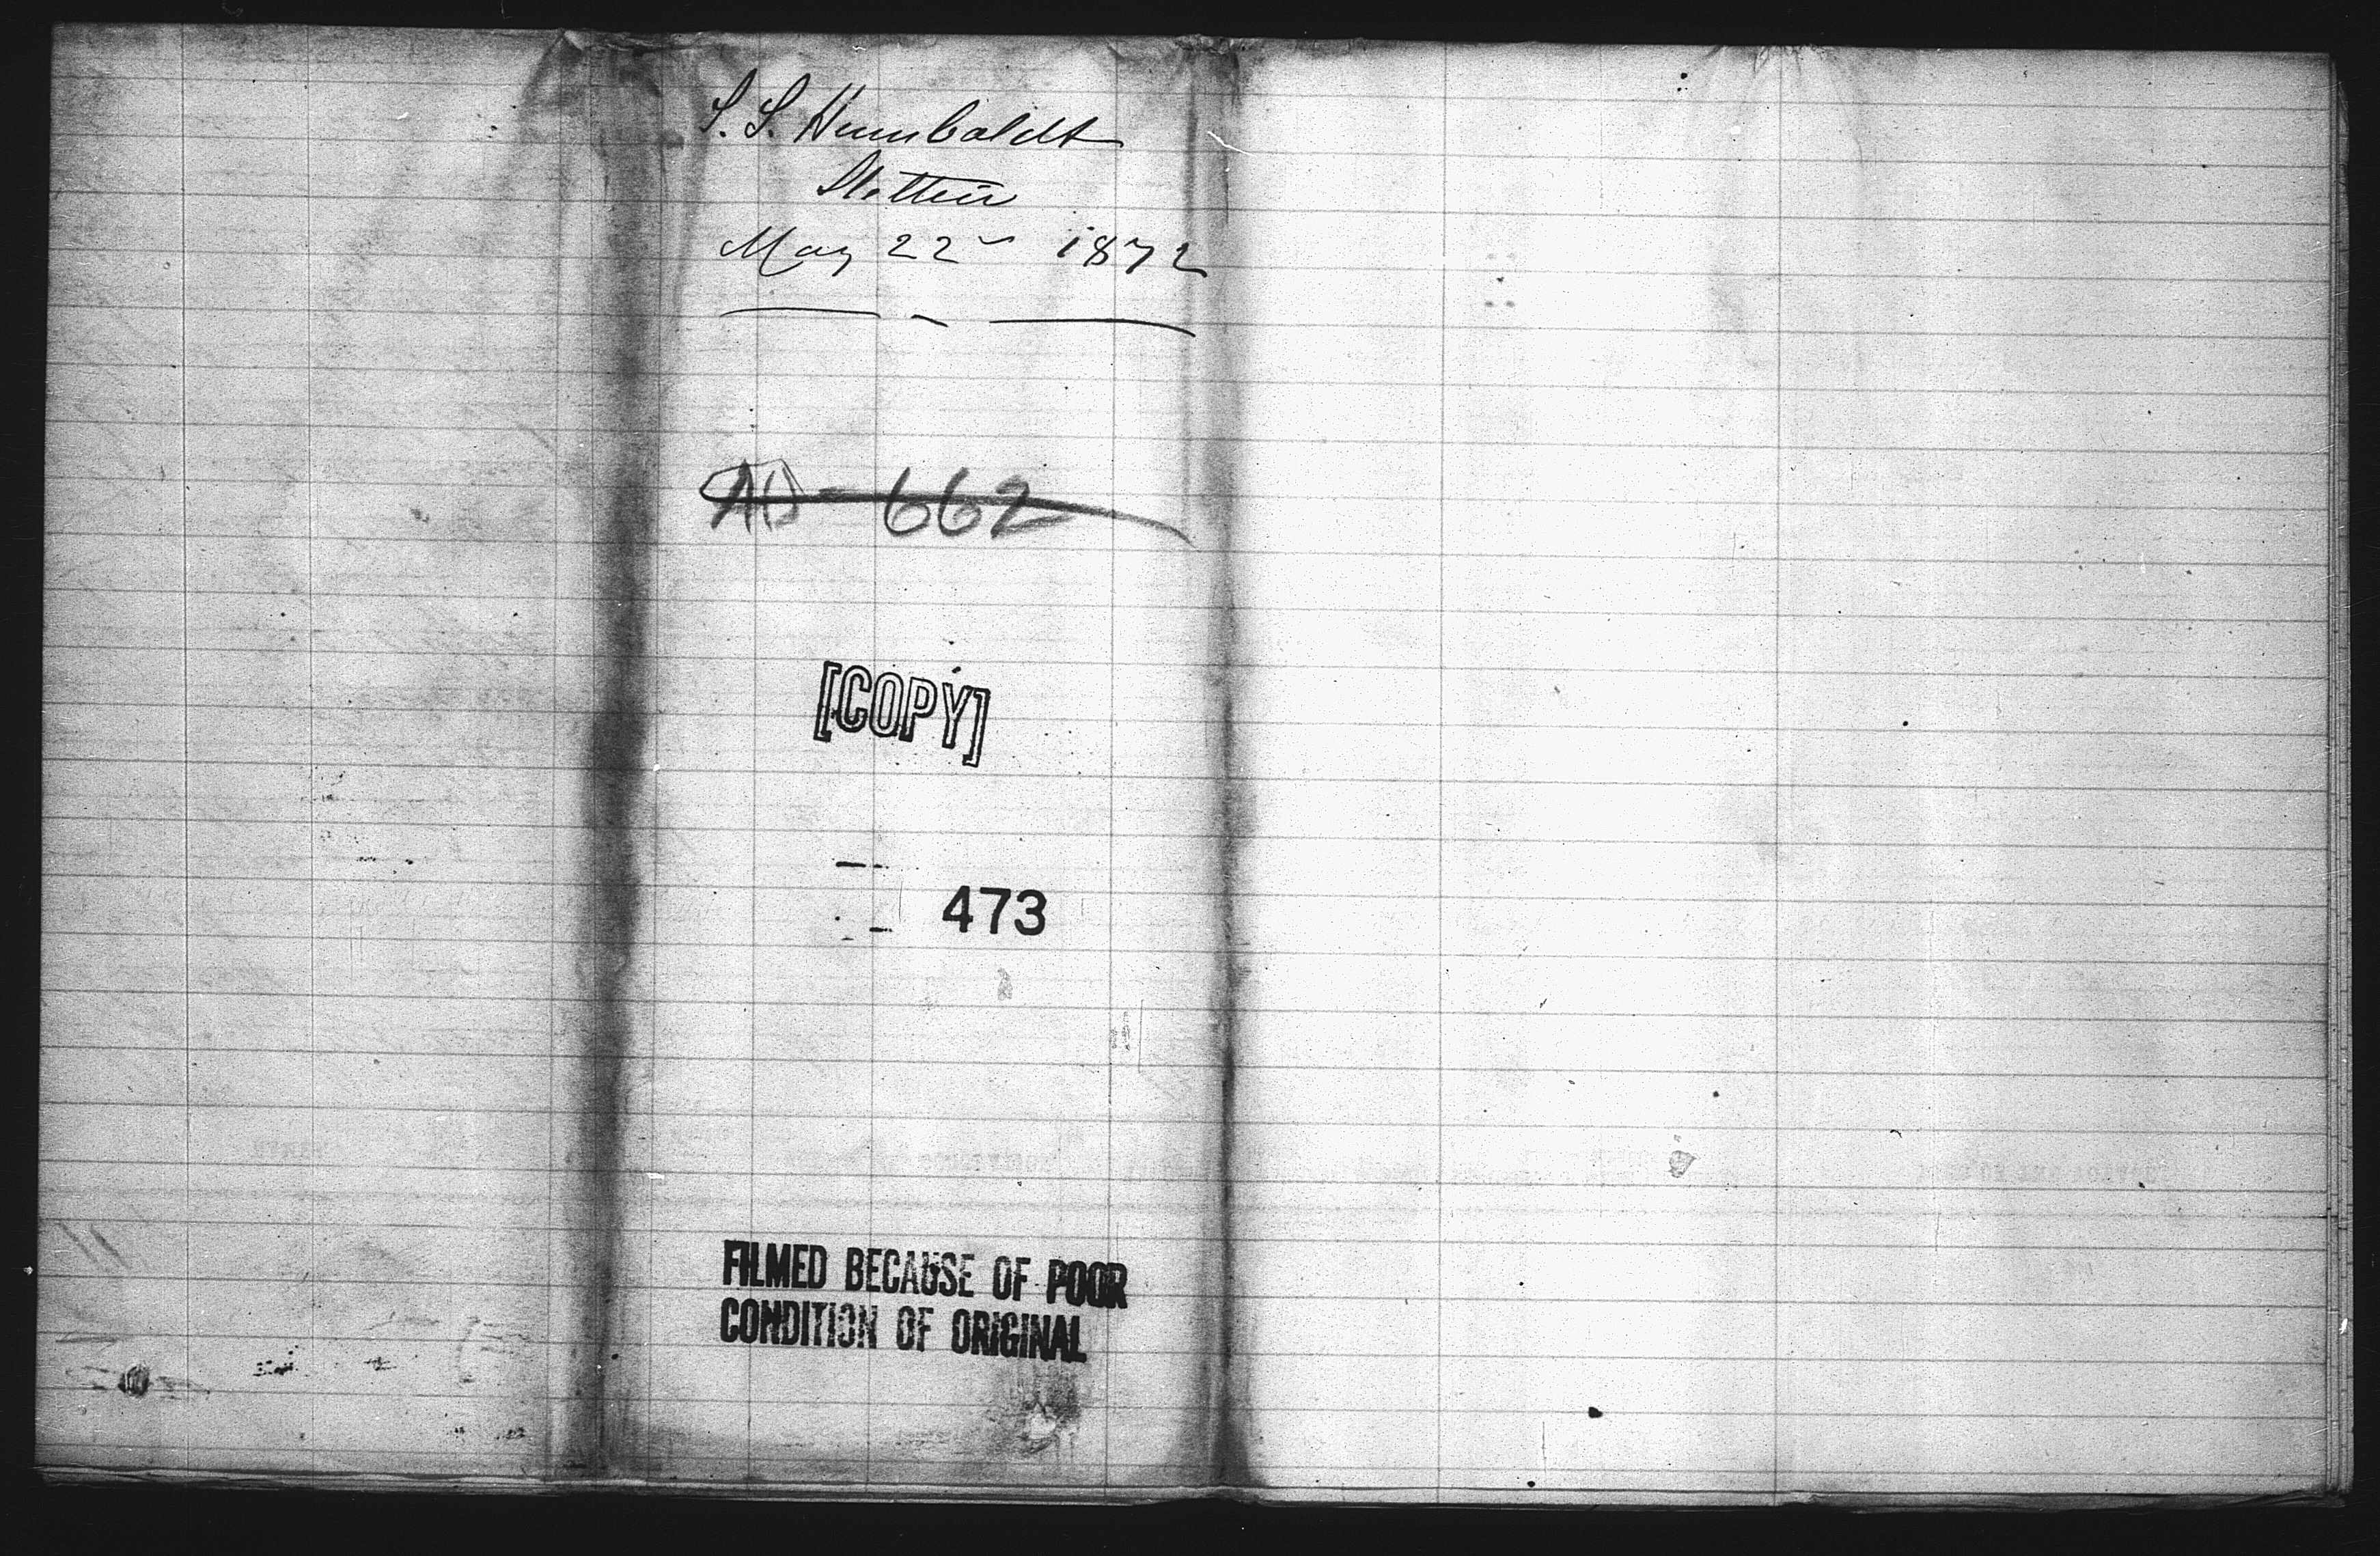 S. S. Humboldt
Stettin
May 22 1872
662
[COPY]
473
FILMED BECAUSE OF POOR
CONDITION OF ORIGINAL